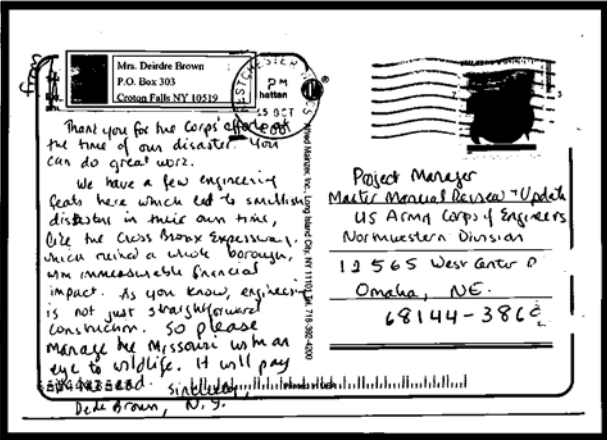 From
Mrs. Deirdre Brown
P.O. Box 303
Croton Falls NY 10519
WESTCHESTER
PM
hattan
15 OCT
2001
Thank you for the Corps' efforts at
the time of our disaster. You
can do great work.
We have a few engineering
feats here which led to smaller
disasters in their own time,
like the Cross Bronx Expressway,
which ruined a whole borough,
with immeasurable financial
impact. As you know, engineering
is not just straightforward
construction. So please
manage the Missouri with an
eye to wildlife. It will pay
in the end.
Sincerely,
Dede Brown, N.Y.
Mainzer, Inc., Long Island City, NY 11101 Tel. 718-392-4200
Project Manager
Master Manual Review + Update
US Army Corps of Engineers
Northwestern Division
12565 West Center R
Omaha, NE.
68144-386